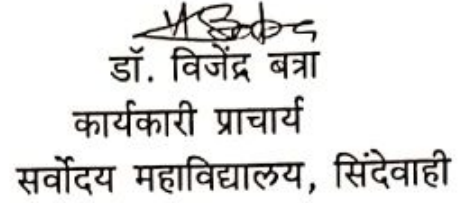 डॉ. विजेंद्र बत्रा
कार्यकारी प्राचार्य
सर्वोदय महाविद्यालय, सिंदेवाही